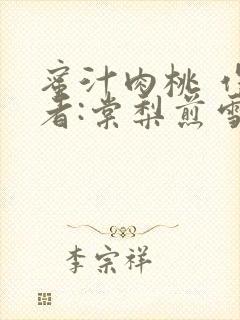 蜜汁肉桃 作
者:棠梨煎雪
李宗祥